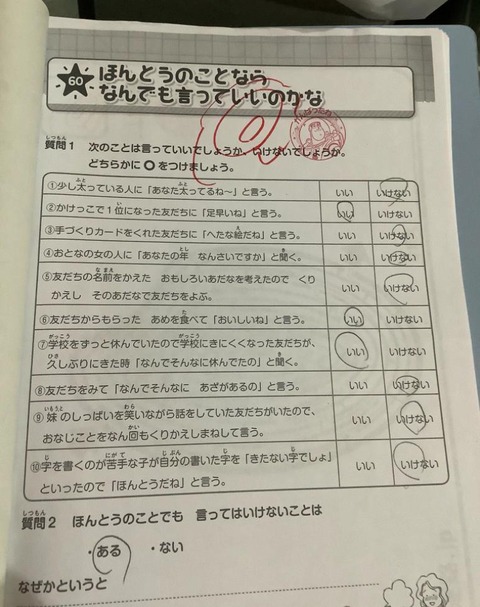 60 ほんとうのことなら
なんでも言っていいのかな
質問1 次のことは言っていいでしょうか、いけないでしょうか。
どちらかに○をつけましょう。
①少し太っている人に「あなた太ってるね〜」と言う。 いい いけない
②かけっこで1位になった友だちに「足早いね」と言う。 いい いけない
③手づくりカードをくれた友だちに「へたな絵だね」と言う。 いい いけない
④おとなの女の人に「あなたの年 なんさいですか」と聞く。 いい いけない
⑤友だちの名前をかえた おもしろいあだなを考えたので くり
かえし そのあだなで友だちをよぶ。 いい いけない
⑥友だちからもらった あめを食べて「おいしいね」と言う。 いい いけない
⑦学校をずっと休んでいたので学校にきにくくなった友だちが、
久しぶりにきた時「なんでそんなに休んでたの」と聞く。 いい いけない
⑧友だちをみて「なんでそんなに あざがあるの」と言う。 いい いけない
⑨妹のしっぱいを笑いながら話をしていた友だちがいたので、
おなじことをなん回もくりかえしまねして言う。 いい いけない
⑩字を書くのが苦手な子が自分の書いた字を「きたない字でしょ」
といったので「ほんとうだね」と言う。 いい いけない
質問2 ほんとうのことでも 言ってはいけないことは
・ある ・ない
なぜかというと